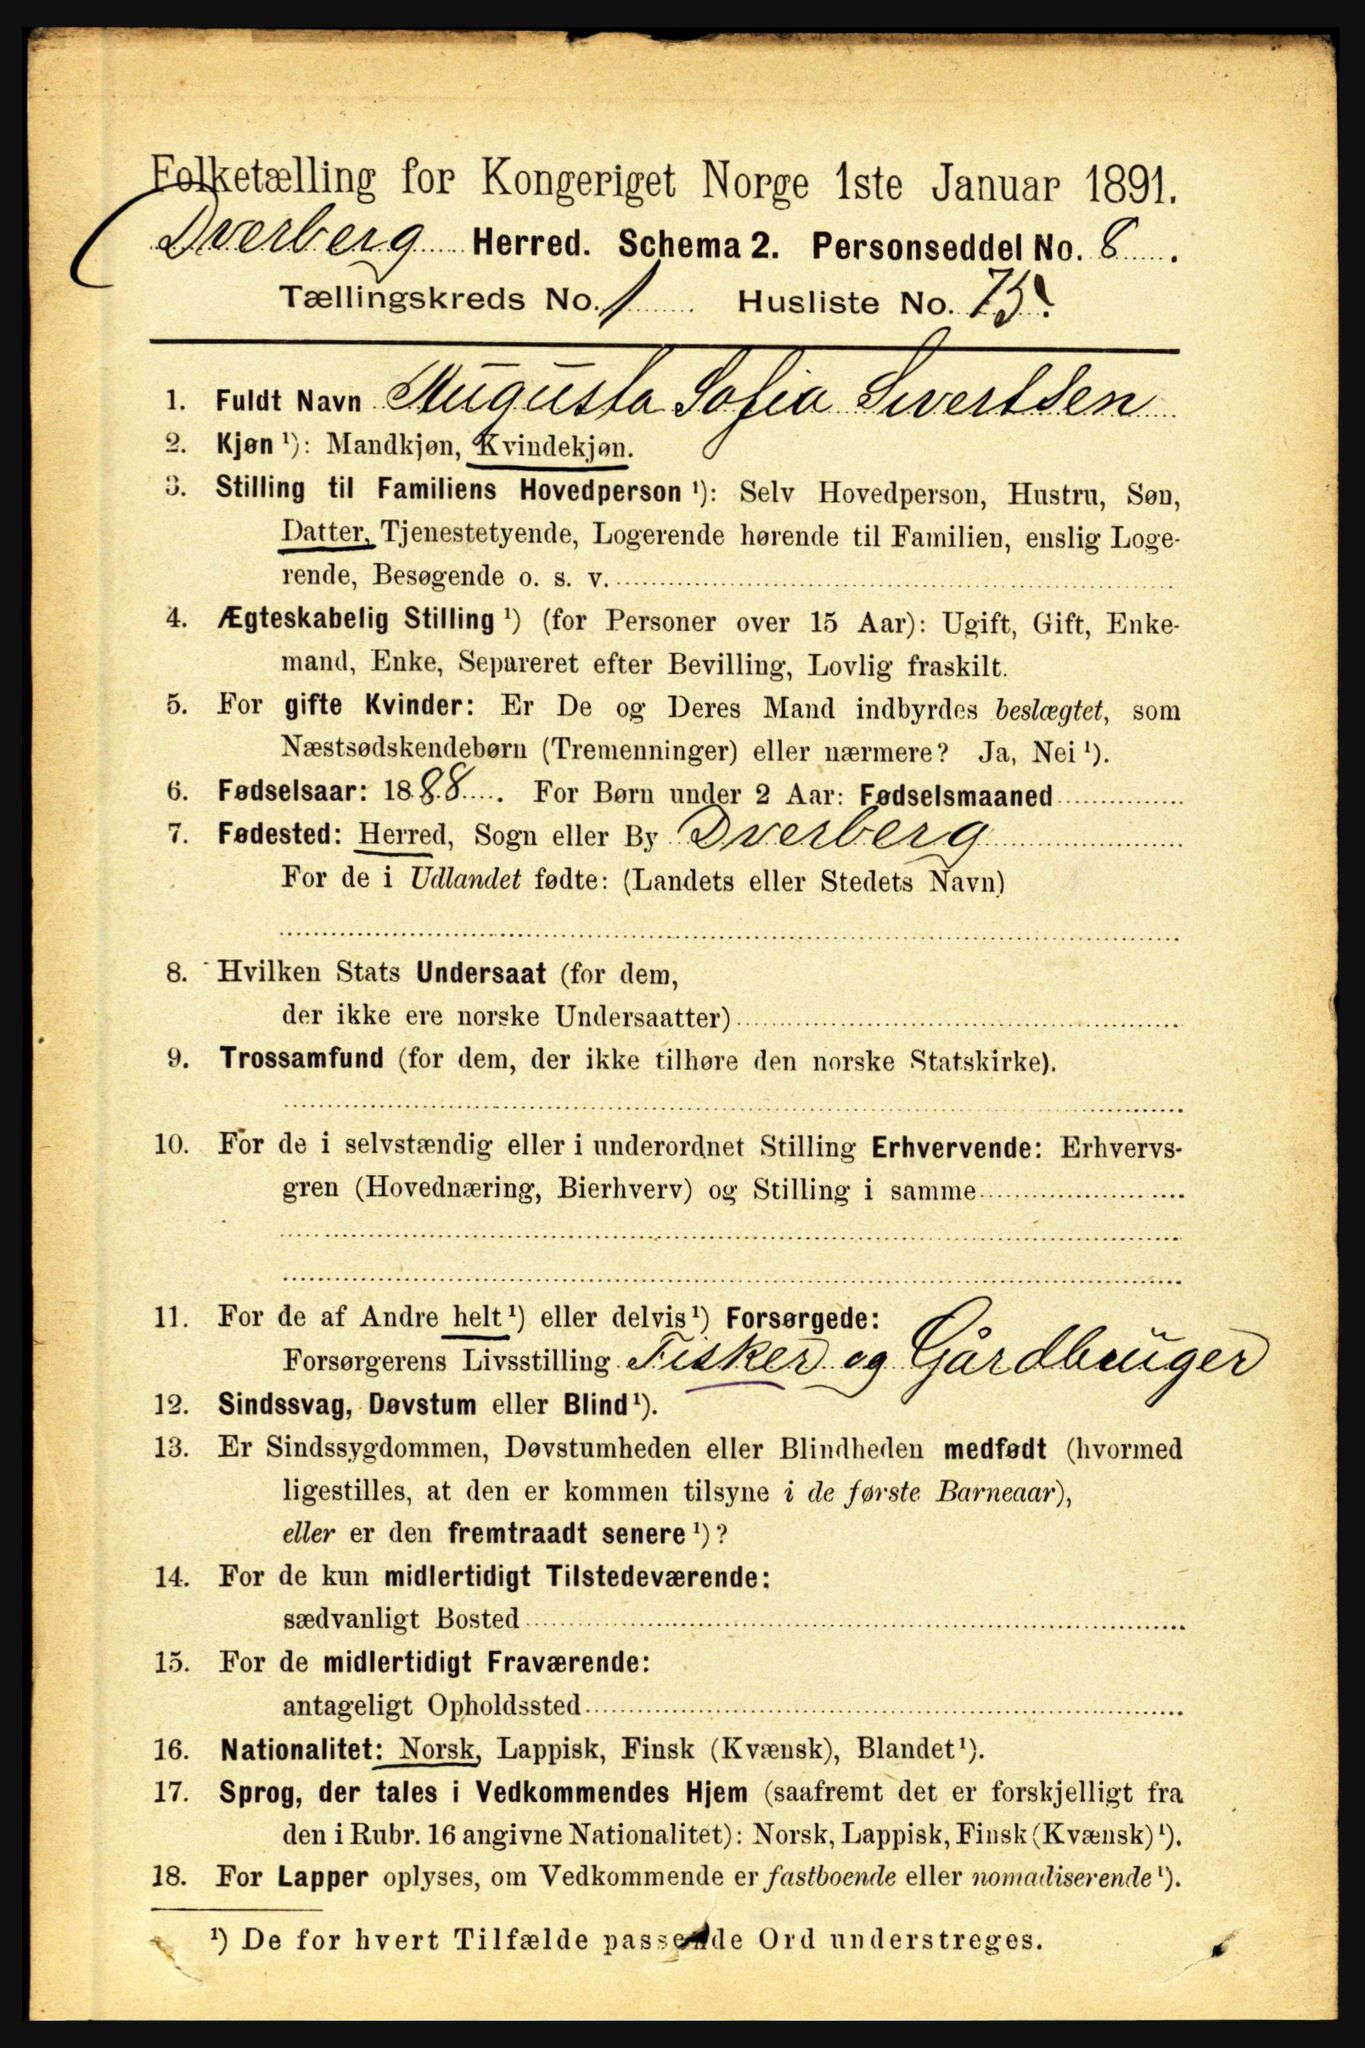 Folketælling for Kongeriget Norge 1ste Januar 1891.
Dverberg Herred. Schema 2. Personseddel No. 8.
Tællingskreds No. 1 Husliste No. 75.
1. Fuldt Navn Augusta Sofia Sivertsen
2. Kjøn ¹): Mandkjøn, Kvindekjøn.
3. Stilling til Familiens Hovedperson ¹): Selv Hovedperson, Hustru, Søn,
Datter, Tjenestetyende, Logerende hørende til Familien, enslig Loge-
rende, Besøgende o. s. v.
4. Ægteskabelig Stilling ¹) (for Personer over 15 Aar): Ugift, Gift, Enke-
mand, Enke, Separeret efter Bevilling, Lovlig fraskilt.
5. For gifte Kvinder: Er De og Deres Mand indbyrdes beslægtet, som
Næstsødskendebørn (Tremenninger) eller nærmere? Ja, Nei ¹).
6. Fødselsaar: 1888. For Børn under 2 Aar: Fødselsmaaned
7. Fødested: Herred, Sogn eller By Dverberg
For de i Udlandet fødte: (Landets eller Stedets Navn)
8. Hvilken Stats Undersaat (for dem,
der ikke ere norske Undersaatter)
9. Trossamfund (for dem, der ikke tilhøre den norske Statskirke).
10. For de i selvstændig eller i underordnet Stilling Erhvervende: Erhvervs-
gren (Hovednæring, Bierhverv) og Stilling i samme
11. For de af Andre helt ¹) eller delvis ¹) Forsørgede:
Forsørgerens Livsstilling Fisker og Gårdbruger
12. Sindssvag, Døvstum eller Blind ¹).
13. Er Sindssygdommen, Døvstumheden eller Blindheden medfødt (hvormed
ligestilles, at den er kommen tilsyne i de første Barneaar),
eller er den fremtraadt senere ¹)?
14. For de kun midlertidigt Tilstedeværende:
sædvanligt Bosted
15. For de midlertidigt Fraværende:
antageligt Opholdssted
16. Nationalitet: Norsk, Lappisk, Finsk (Kvænsk), Blandet ¹).
17. Sprog, der tales i Vedkommendes Hjem (saafremt det er forskjelligt fra
den i Rubr. 16 angivne Nationalitet): Norsk, Lappisk, Finsk (Kvænsk) ¹).
18. For Lapper oplyses, om Vedkommende er fastboende eller nomadiserende ¹).
¹) De for hvert Tilfælde passende Ord understreges.